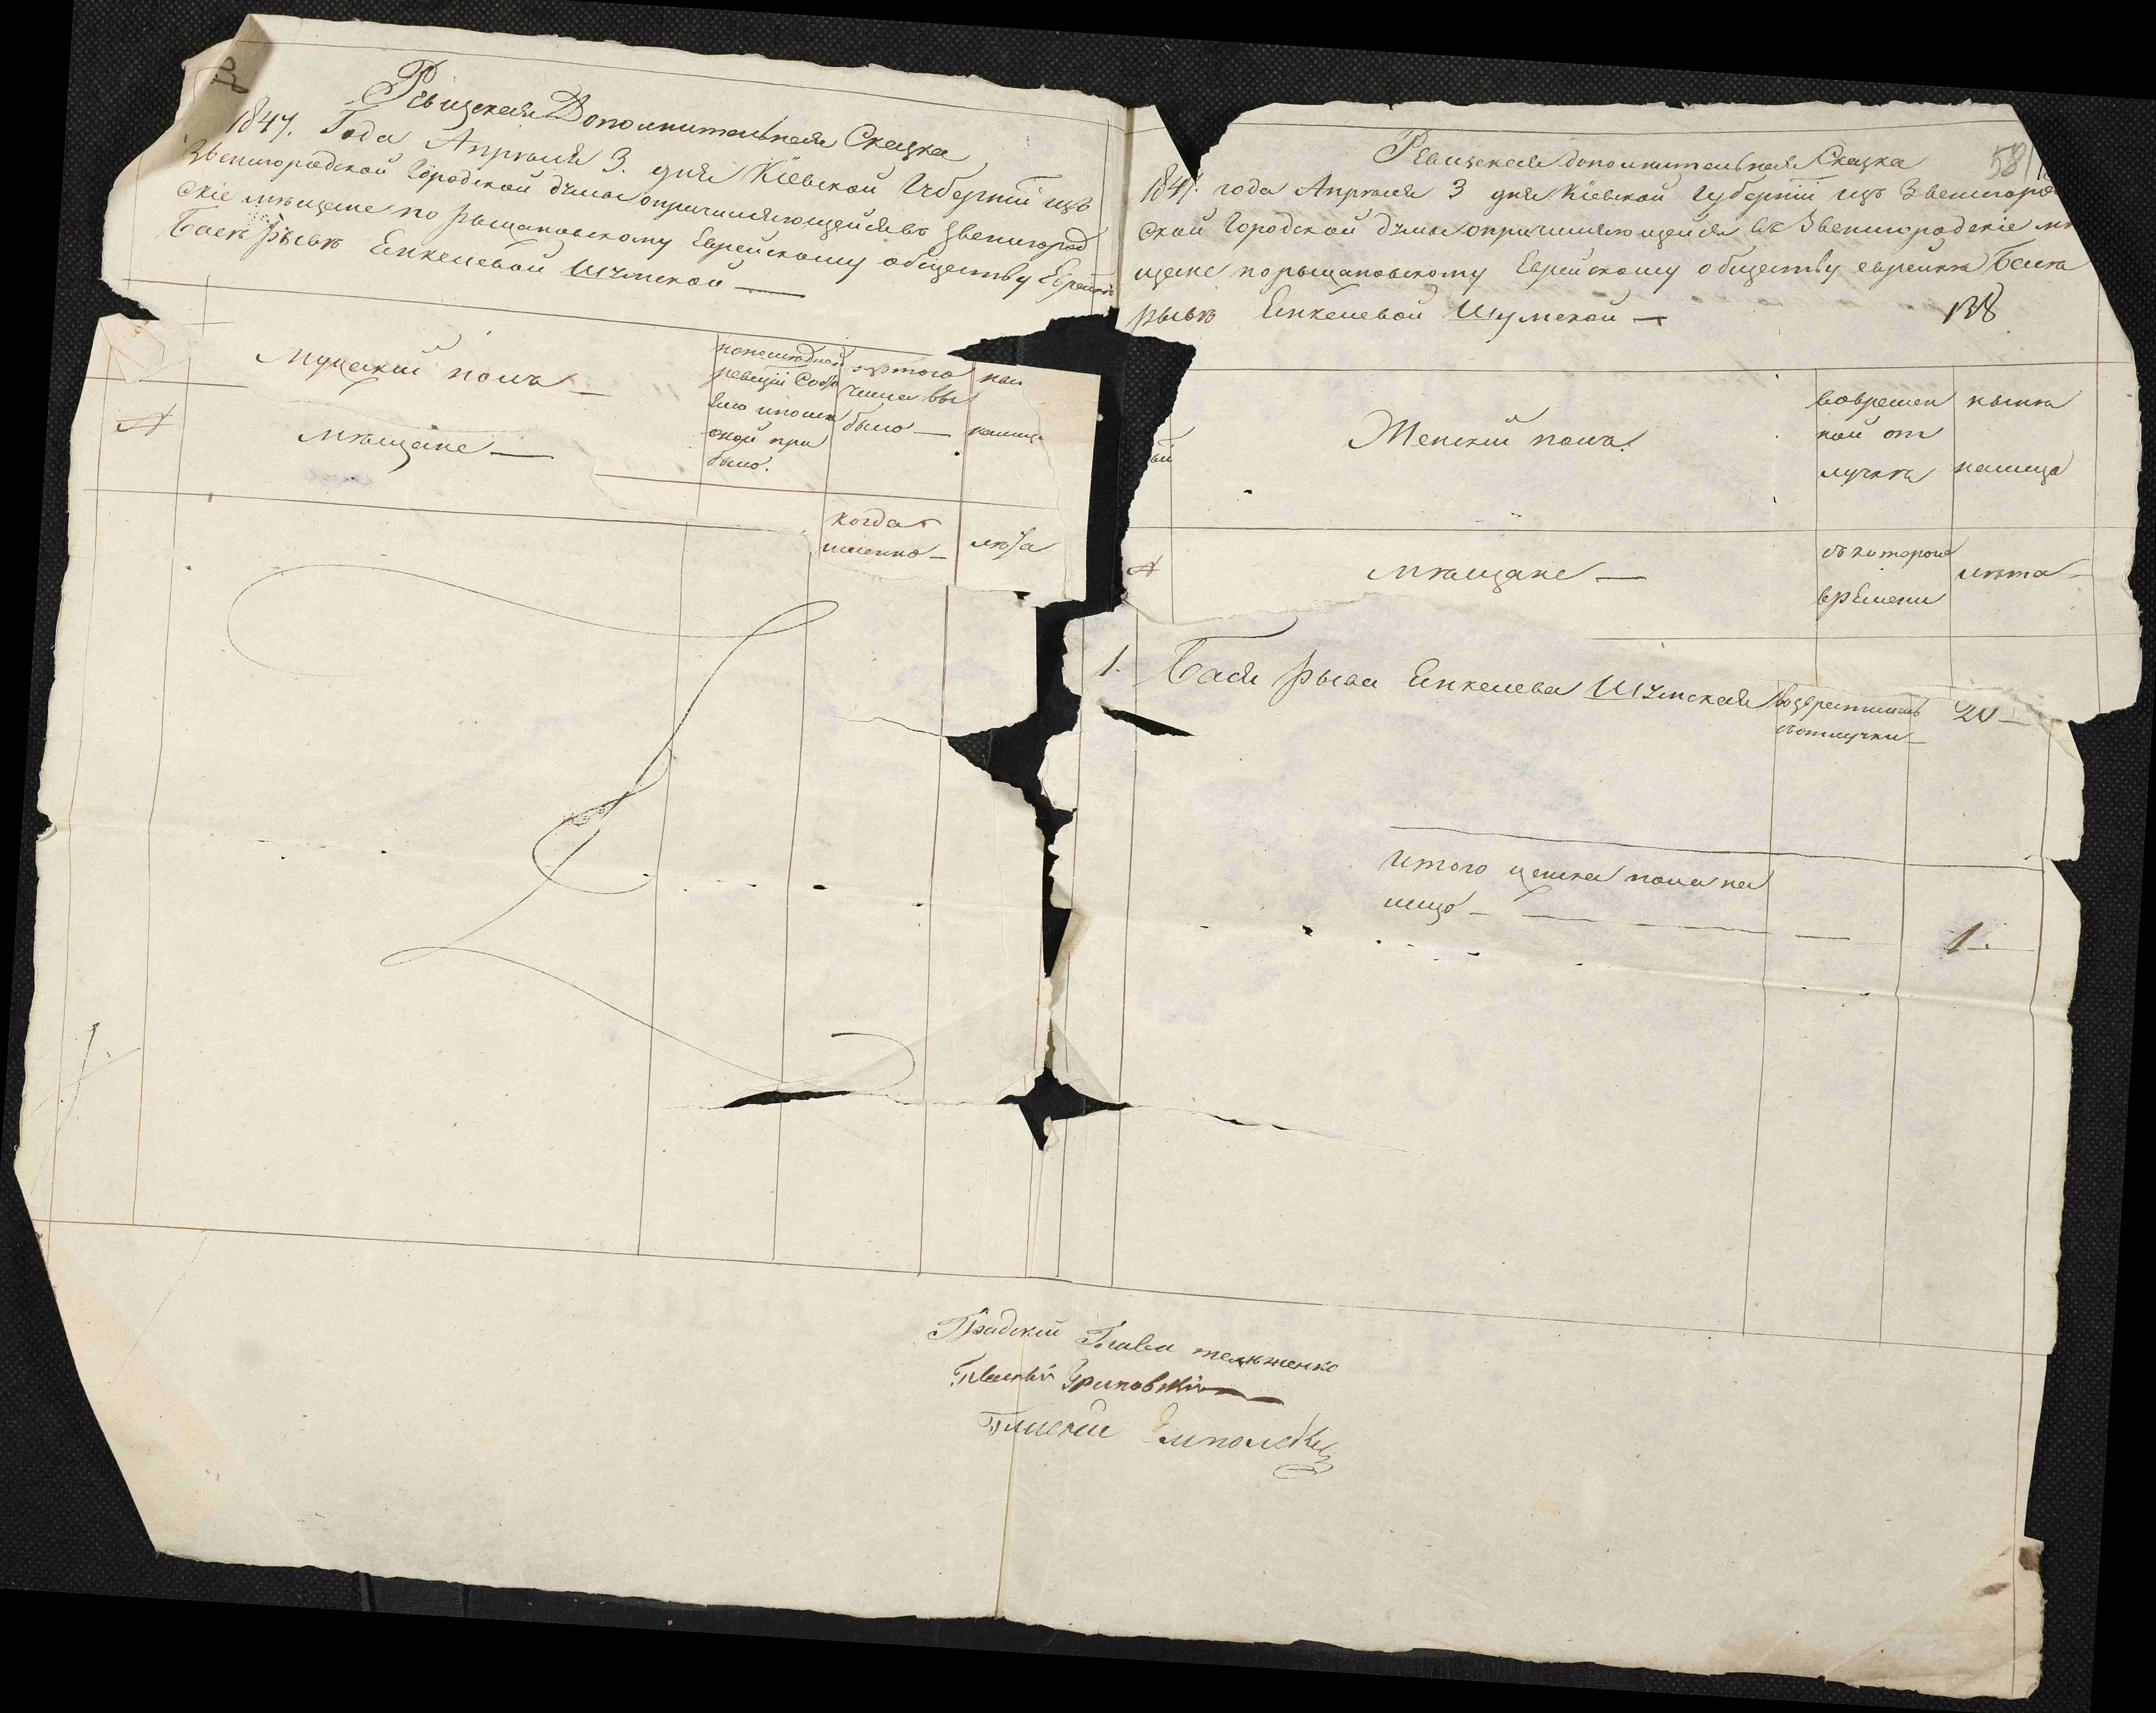 Ревизская Дополнительная Сказка
1847. Года Апреля 3. дня Кіевской Губерніи изъ
Звенигородской Городской думы о причисляющейся въ Звенигород
скіе мещане по рыщановскому Еврейскому обществу Еврейки
Баси Рыви Енкелевой Шумской —
Мужескій полъ —
по последней
ревизіи состо
было —
изъ того
числа вы
было —
№
мещане —
когда
именно —
лета
Ревизская дополнительная Сказка
581
1847. года Апреля 3 дня Кіевской Губерніи изъ Звенигород
ской Городской думы о причисляющейся въ Звенигородскіе ме
щане по рыщановскому Еврейскому обществу еврейки Баси
рыви Енкелевой Шумской —
138
Женскій полъ.
во времен
ной от
лучке
ныне
налицо
№
мещане —
съ которого
времени
лета —
1. Бася Рыва Енкелева Шумская возвратилась 20 —
съ отлучки —
Итого женска пола на
лицо — 1.
Градскій Глава
Гласный
Гласный